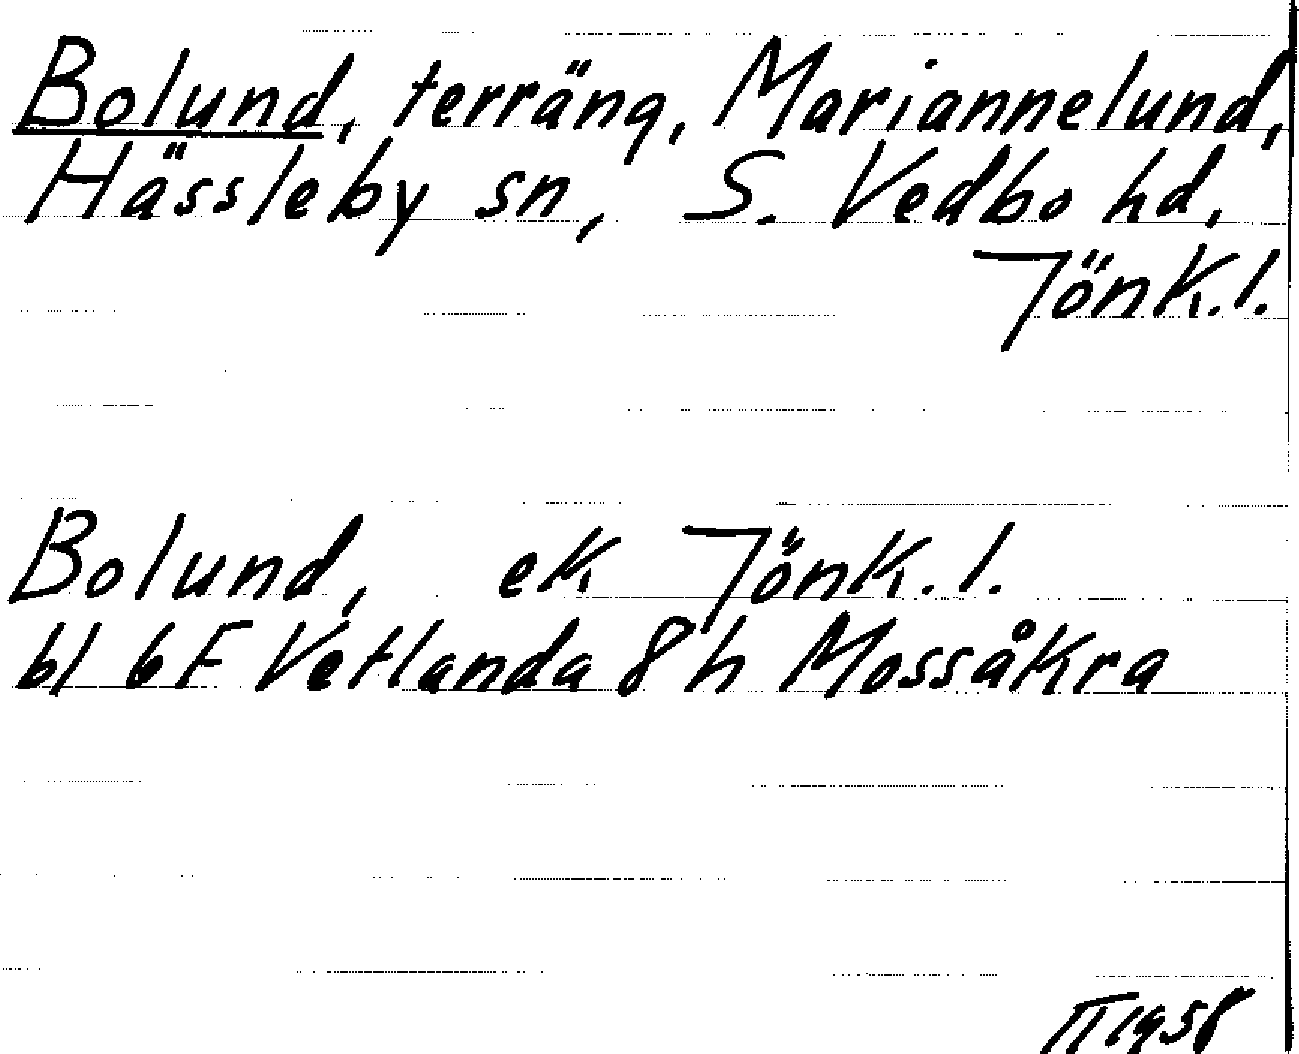 Bolund, terräng, Mariannelund,
Hässleby sn, S. Vedbo hd,
Jönk.l.
Bolund, ek Jönk.l.
bl 6F Vetlanda 8 h Mossåkra
II 1958